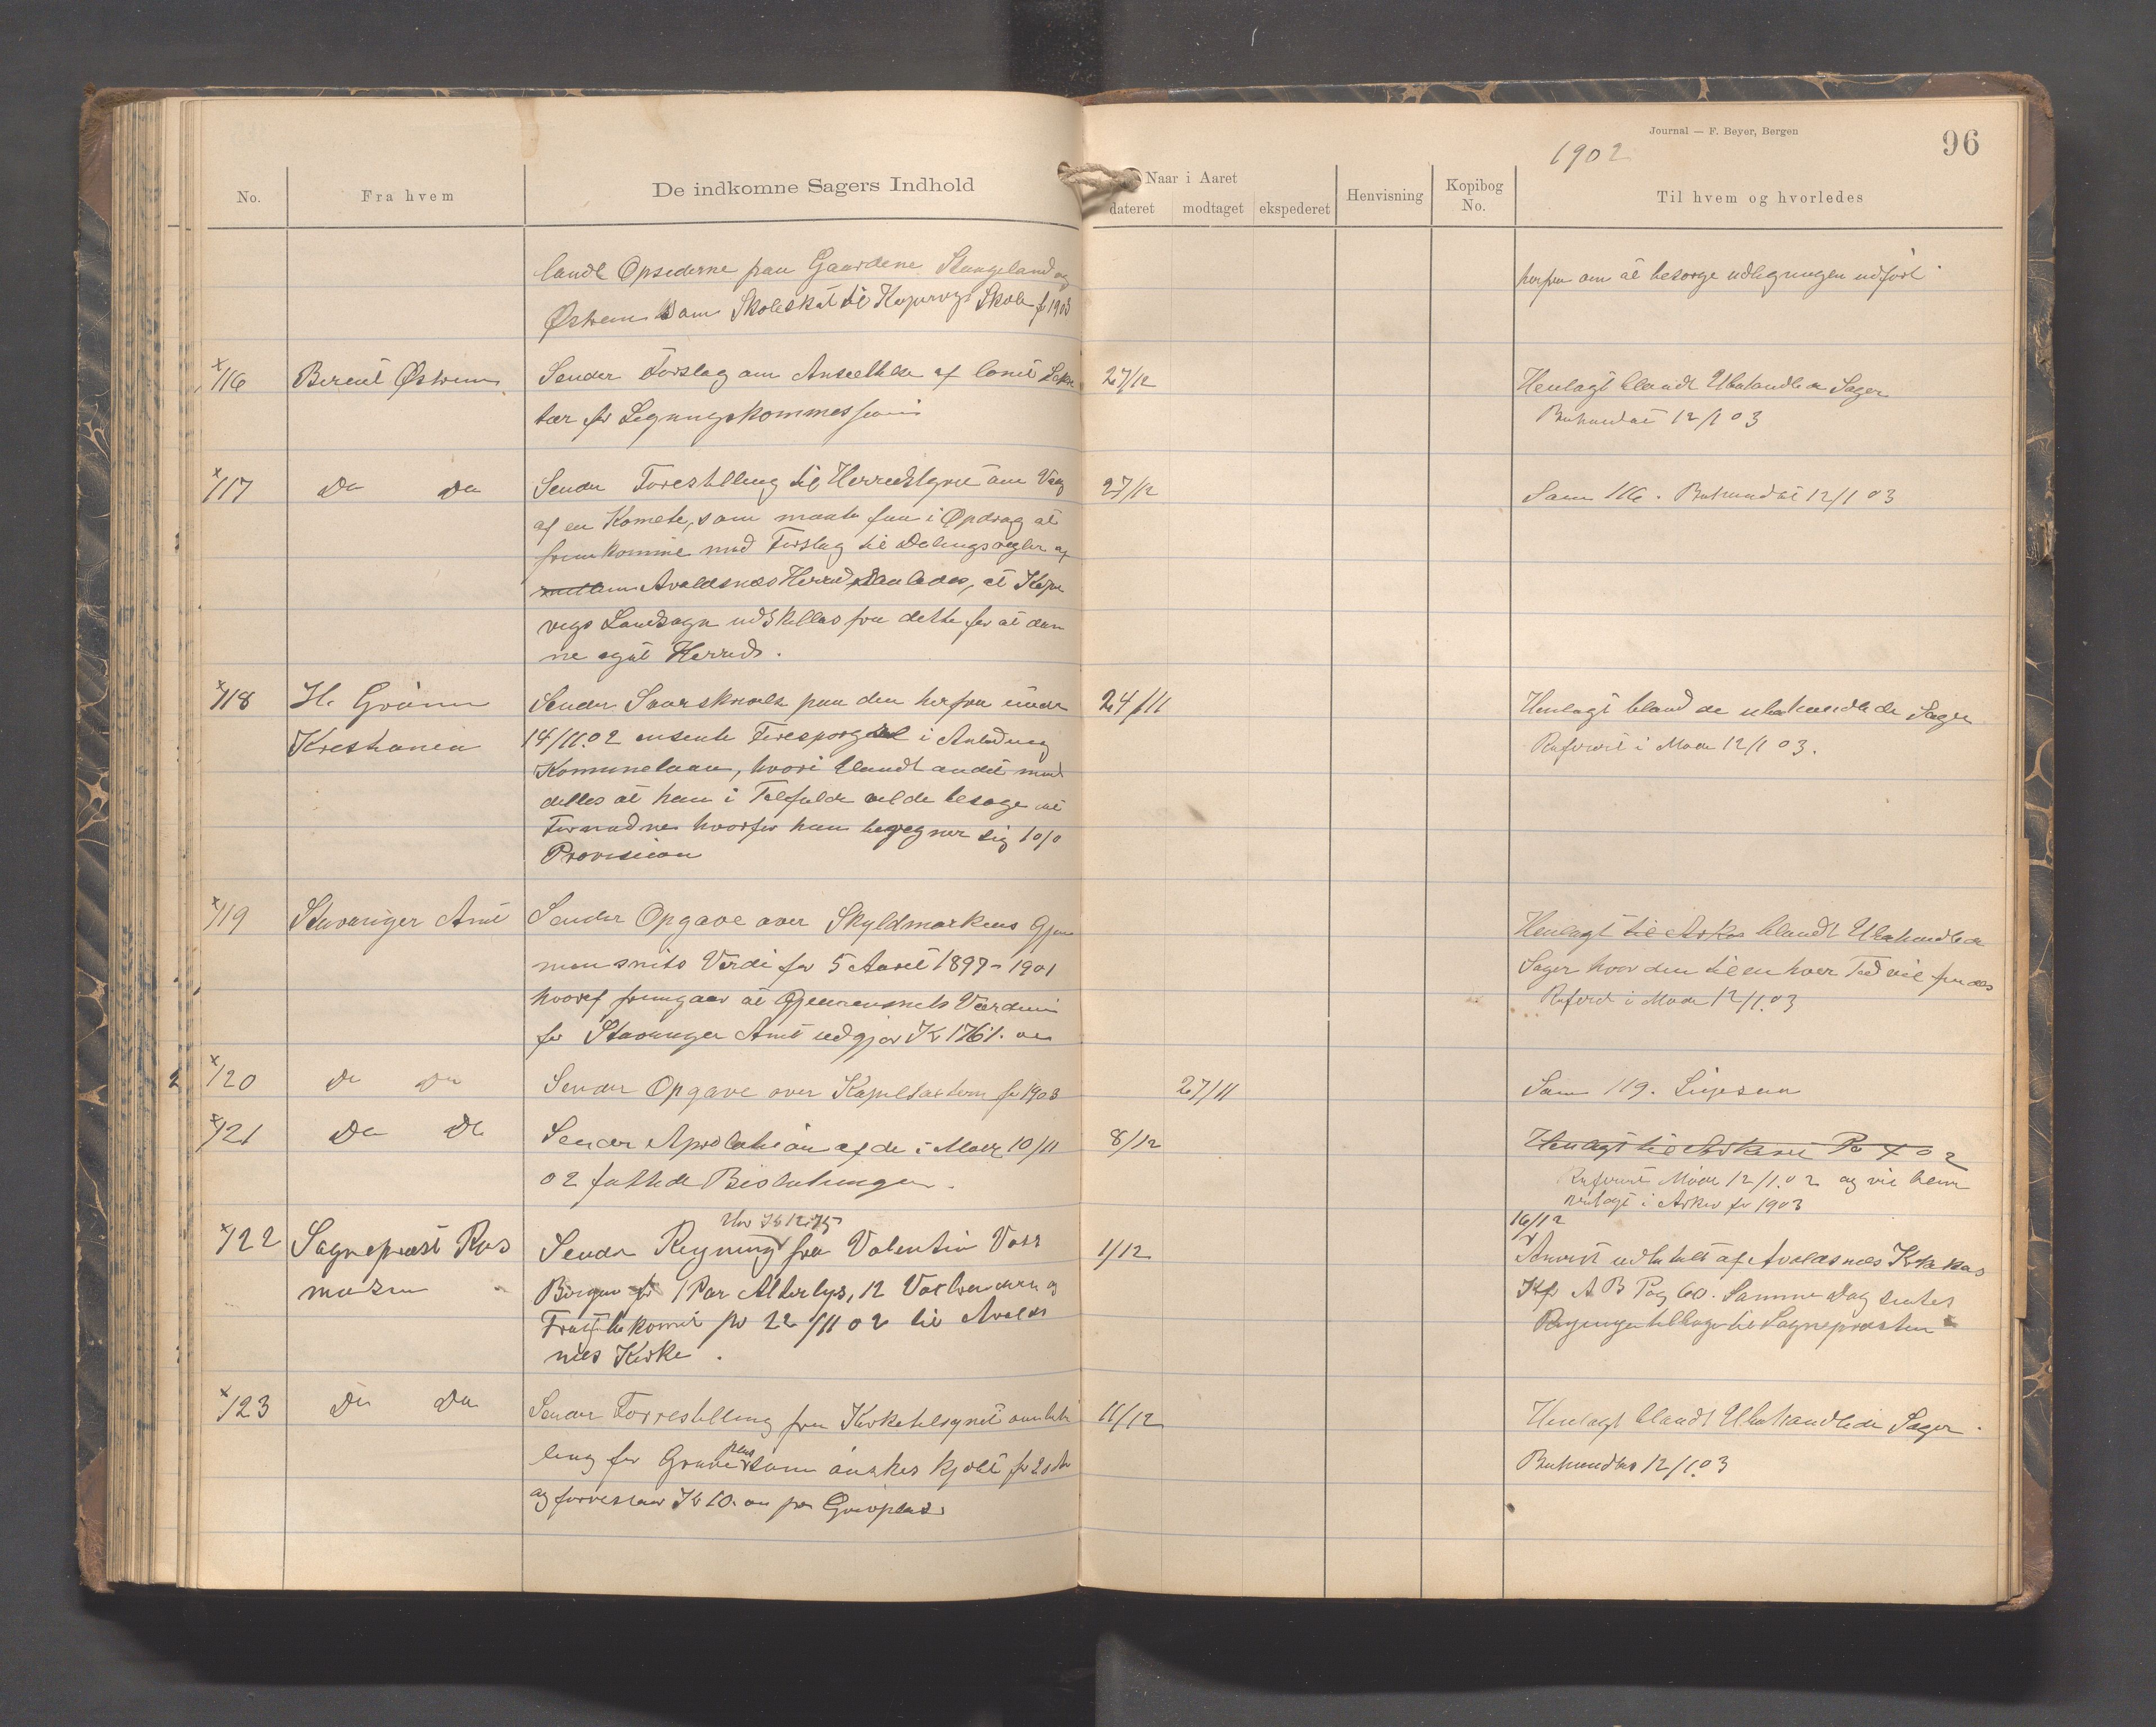 Journal — F. Beyer, Bergen
96
1902
No.
Fra hvem
De indkomne Sagers Indhold
Naar i Aaret
dateret
modtaget
ekspederet
Henvisning
Kopibog No.
Til hvem og hvorledes
landt Opsiderne paa Gaardene Stangeland og
Østrem som Skoleskat til Kopervigs Skole f 1903
herfra om at besørge udligningen udført
116 Berent Østrem
Sender Forslag om Ansættelse af lønnet Sekre
tær for Ligningskommessionen
27/12
Henlagt blandt Ubehandlede Sager
Behandlet 12/1 03
117 Do Do
Sender Forestilling til Herredstyret om Valg
af en Komete, som maatte faa i Opdrag at
fremkomme med Forslag til Delingsregler af
Avaldsnes Herred, saaledes, at Koper
vigs Landsogn udskilles fra dette for at dan
ne eget Herred.
27/12
Som 116. Behandlet 12/1 03
118 H. Grönn
Krestiania
Sender Svarskrivelse paa den herfra under
14/11.02 Forespørgsel i Anledning
Kommunelaan, hvori blandt andet med
deles at han i Tilfælde vilde besøge
hvorfor han beregner sig 1 0/0
Provision
24/11
Henlagt bland de ubehandlede Sager
Referert i Møde 12/1 03.
119 Stavanger Amt
Sender Opgave over Skyldmarkens Gjen
nemsnits Verdi for 5 Aaret 1897-1901
hvoraf fremgaar at Gjennemsnits Værdien
for Stavanger Amt udgjør Kr 1761.
Henlagt til Arkiv blandt Ubehandlede
Sager hvor den til en hver Tid vil findes
Referert i Møde 12/1.03
120 Do Do
Sender Opgave over Kapitelstaxterne for 1903
27/11
Som 119. Ligesaa
121 Do Do
Sender Aprobation af de i Møde 10/11
02 fattede Beslutninger.
8/12
Henlagt til Arkivet 02
Referert Møde 12/1.02 og vil blive
henlagt i Arkiv for 1903
122 Sogneprest Ras
mussen
Sender Regning fra Valentin Voss
Bergen for 1 Par Alterlys, 12 og
Fragt bekomet pr 22/11 02 til Avalds
nes Kirke.
1/12
16/12
Anvist udbetalt af Avaldsnes Kirkekas
Kfr A B Pag 60. Samme Dag sendtes
Regningen tilbage til Sognepresten
123 Do Do
Sender Forrestilling fra Kirketilsynet om beta
ling for Gravepladser som ønskes kjøbt for 20 Aar
og forreslaar Kr 10. pr Gravplads
11/12
Henlagt blandt Ubehandlede Sager.
Behandles 12/1.03